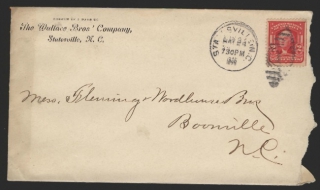 The Wallace Bros. Company,
Statesville, N. C.
STATESVILLE, N.C.
MAY 24
7 30 PM
Mess. Flemming & Woodhouse Bros
Boonville
N.C.